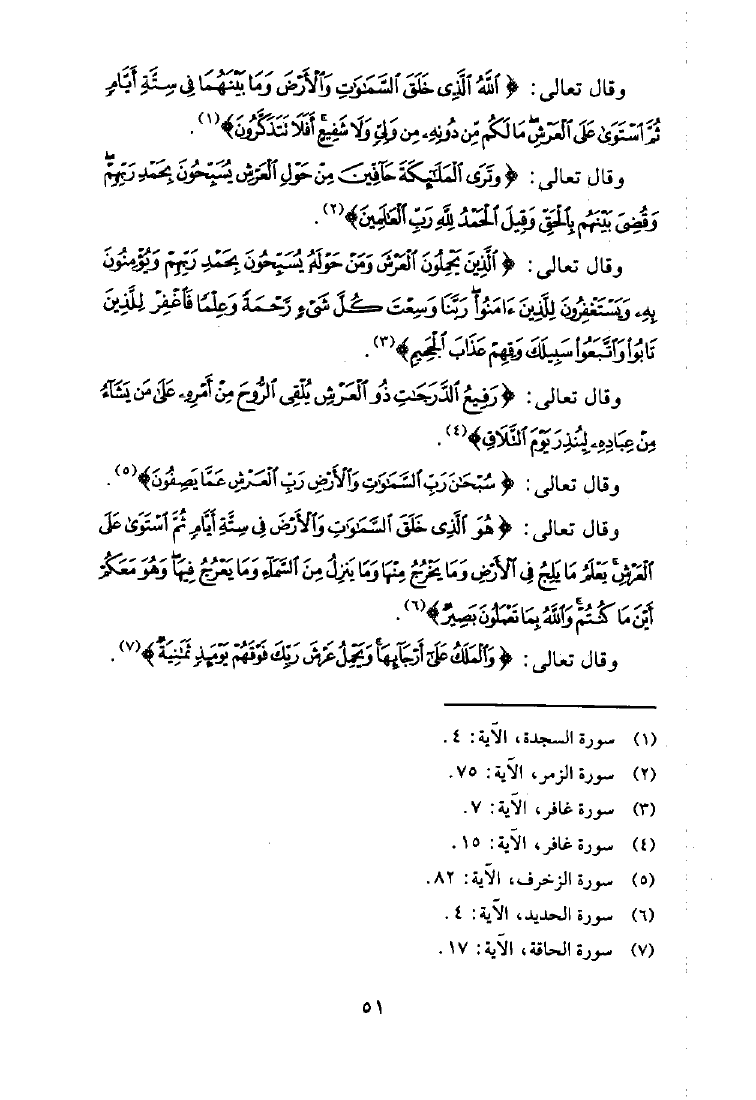 وقال تعالى: ﴿ ٱللَّهُ ٱلَّذِى خَلَقَ ٱلسَّمَٰوَٰتِ وَٱلْأَرْضَ وَمَا بَيْنَهُمَا فِى سِتَّةِ أَيَّامٍ
ثُمَّ ٱسْتَوَىٰ عَلَى ٱلْعَرْشِ ۖ مَا لَكُم مِّن دُونِهِۦ مِن وَلِىٍّ وَلَا شَفِيعٍ ۚ أَفَلَا تَتَذَكَّرُونَ ﴾(١).
وقال تعالى: ﴿ وَتَرَى ٱلْمَلَٰٓئِكَةَ حَآفِّينَ مِنْ حَوْلِ ٱلْعَرْشِ يُسَبِّحُونَ بِحَمْدِ رَبِّهِمْ ۖ
وَقُضِىَ بَيْنَهُم بِٱلْحَقِّ وَقِيلَ ٱلْحَمْدُ لِلَّهِ رَبِّ ٱلْعَٰلَمِينَ ﴾(٢).
وقال تعالى: ﴿ ٱلَّذِينَ يَحْمِلُونَ ٱلْعَرْشَ وَمَنْ حَوْلَهُۥ يُسَبِّحُونَ بِحَمْدِ رَبِّهِمْ وَيُؤْمِنُونَ
بِهِۦ وَيَسْتَغْفِرُونَ لِلَّذِينَ ءَامَنُوا۟ ۖ رَبَّنَا وَسِعْتَ كُلَّ شَىْءٍ رَّحْمَةً وَعِلْمًا فَٱغْفِرْ لِلَّذِينَ
تَابُوا۟ وَٱتَّبَعُوا۟ سَبِيلَكَ وَقِهِمْ عَذَابَ ٱلْجَحِيمِ ﴾(٣).
وقال تعالى: ﴿ رَفِيعُ ٱلدَّرَجَٰتِ ذُو ٱلْعَرْشِ يُلْقِى ٱلرُّوحَ مِنْ أَمْرِهِۦ عَلَىٰ مَن يَشَآءُ
مِنْ عِبَادِهِۦ لِيُنذِرَ يَوْمَ ٱلتَّلَاقِ ﴾(٤).
وقال تعالى: ﴿ سُبْحَٰنَ رَبِّ ٱلسَّمَٰوَٰتِ وَٱلْأَرْضِ رَبِّ ٱلْعَرْشِ عَمَّا يَصِفُونَ ﴾(٥).
وقال تعالى: ﴿ هُوَ ٱلَّذِى خَلَقَ ٱلسَّمَٰوَٰتِ وَٱلْأَرْضَ فِى سِتَّةِ أَيَّامٍ ثُمَّ ٱسْتَوَىٰ عَلَى
ٱلْعَرْشِ ۚ يَعْلَمُ مَا يَلِجُ فِى ٱلْأَرْضِ وَمَا يَخْرُجُ مِنْهَا وَمَا يَنزِلُ مِنَ ٱلسَّمَآءِ وَمَا يَعْرُجُ فِيهَا ۖ وَهُوَ مَعَكُمْ
أَيْنَ مَا كُنتُمْ ۚ وَٱللَّهُ بِمَا تَعْمَلُونَ بَصِيرٌ ﴾(٦).
وقال تعالى: ﴿ وَٱلْمَلَكُ عَلَىٰٓ أَرْجَآئِهَا ۚ وَيَحْمِلُ عَرْشَ رَبِّكَ فَوْقَهُمْ يَوْمَئِذٍ ثَمَٰنِيَةٌ ﴾(٧).
(١) سورة السجدة، الآية: ٤.
(٢) سورة الزمر، الآية: ٧٥.
(٣) سورة غافر، الآية: ٧.
(٤) سورة غافر، الآية: ١٥.
(٥) سورة الزخرف، الآية: ٨٢.
(٦) سورة الحديد، الآية: ٤.
(٧) سورة الحاقة، الآية: ١٧.
٥١